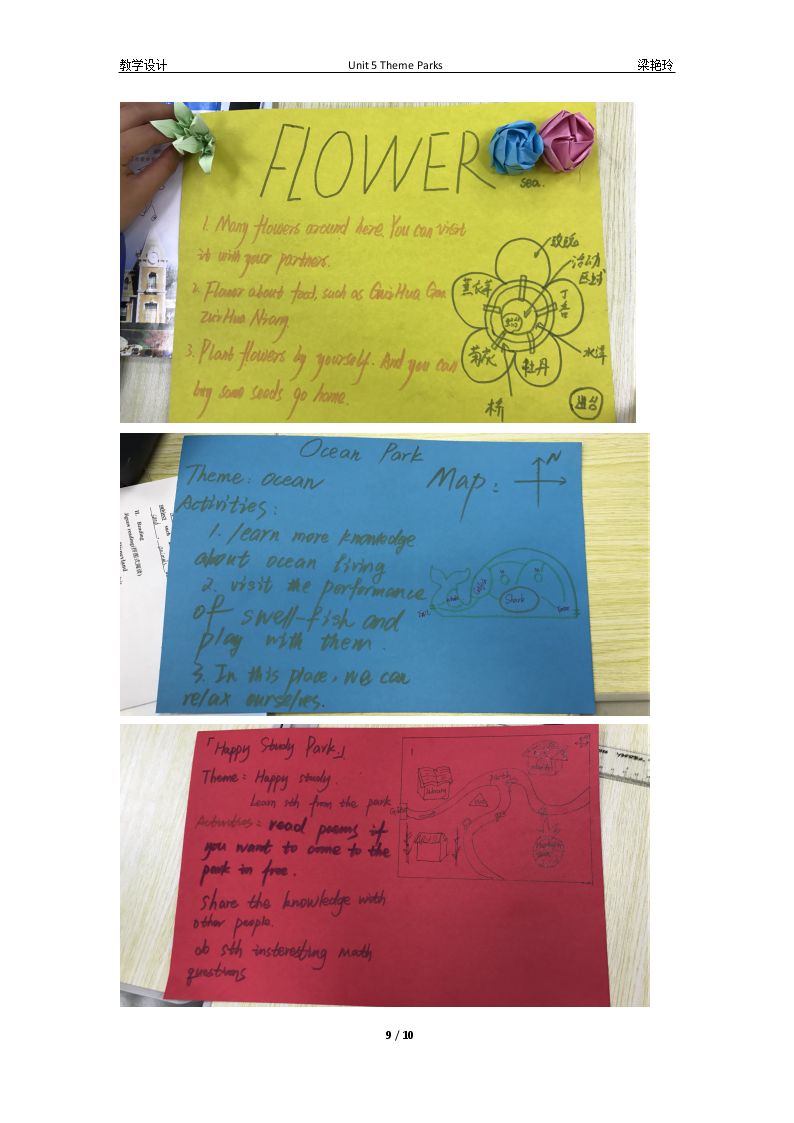 教学设计 Unit 5 Theme Parks 梁艳玲
FLOWER
sea.
1. Many flowers around here. You can visit
it with your partners.
2. Flower about food, such as GuiHua Gao
ZuiHua Niang.
3. Plant flowers by yourself. And you can
buy some seeds go home.
玫瑰
活动
区域
薰衣草
丁香
水洋
菊花
牡丹
桥
Ocean Park
Theme: ocean
Map:
N
Activities:
1. learn more knowledge
about ocean living
2. visit the performance
of swell-fish and
play with them.
3. In this place, we can
relax ourselves.
Shark
II. Reading
「Happy Study Park.」
Theme: Happy study.
Learn sth from the park
Activities: read poems if
you want to come to the
park in free.
Share the knowledge with
other people.
ob sth insteresting math
questions
library
9 / 10